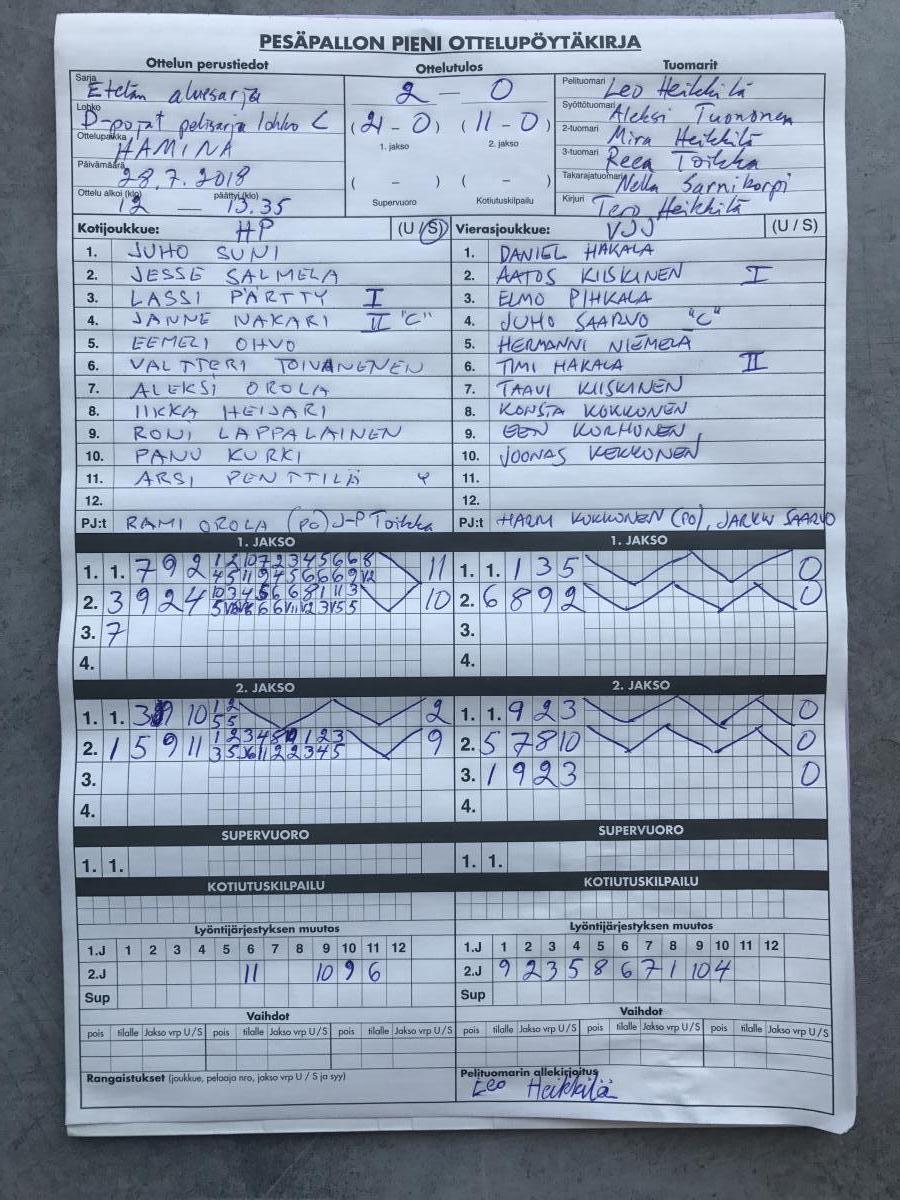 PESÄPALLON PIENI OTTELUPÖYTÄKIRJA
Ottelun perustiedot
Sarja Etelän aluesarja
Lohko D-pojat pelisarja lohko C
Ottelupaikka HAMINA
Päivämäärä 28.7.2018
Ottelu alkoi (klo) 12 — päättyi (klo) 13.35
Ottelutulos
2 — 0
(21 - 0) (11 - 0)
1. jakso 2. jakso
( - ) ( - )
Supervuoro Kotiutuskilpailu
Tuomarit
Pelituomari Leo Heikkilä
Syöttötuomari Aleksi Tuononen
2-tuomari Mira Heikkilä
3-tuomari Reea Toikka
Takarajatuomari Nella Sarnikorpi
Kirjuri Tero Heikkilä
Kotijoukkue: HP (U / S)
1. JUHO SUNI
2. JESSE SALMELA
3. LASSI PÄRTTY I
4. JANNE NAKARI II "C"
5. EEMELI OHVO
6. VALTTERI TOIVANENEN
7. ALEKSI OROLA
8. IIKKA HEIJARI
9. RONI LAPPALAINEN
10. PANU KURKI
11. ARSI PENTTILÄ
12.
PJ:t RAMI OROLA (PO) J-P Toikka
Vierasjoukkue: VJJ (U / S)
1. DANIEL HAKALA
2. AATOS KIISKINEN I
3. ELMO PIHKALA
4. JUHO SAARVO "C"
5. HERMANNI NIEMELÄ
6. TIMI HAKALA II
7. TAAVI KIISKINEN
8. KONSTA KOKKONEN
9. EEN KORHONEN
10. JOONAS KEKKONEN
11.
12.
PJ:t HARM KOKKONEN (PO), JARKW SAARVO
1. JAKSO
1. 1. 7 9 2 1 2 10 7 2 3 4 5 6 6 8 11
4 5 11 9 4 5 6 6 6 9 V2
2. 3 9 2 4 10
3. 7
4.
1. JAKSO
1. 1. 1 3 5 0
2. 6 8 9 2 0
3.
4.
2. JAKSO
1. 1. 3 9 10 1 2 2
5 5
2. 1 5 9 11 9
3.
4.
2. JAKSO
1. 1. 9 2 3 0
2. 5 7 8 10 0
3. 1 9 2 3 0
4.
SUPERVUORO
1. 1.
SUPERVUORO
1. 1.
KOTIUTUSKILPAILU
KOTIUTUSKILPAILU
Lyöntijärjestyksen muutos
1.J 1 2 3 4 5 6 7 8 9 10 11 12
2.J 11 10 9 6
Sup
Lyöntijärjestyksen muutos
1.J 1 2 3 4 5 6 7 8 9 10 11 12
2.J 9 2 3 5 8 6 7 1 10 4
Sup
Vaihdot
pois tilalle Jakso vrp U / S pois tilalle Jakso vrp U / S pois tilalle Jakso vrp U / S
Vaihdot
pois tilalle Jakso vrp U / S pois tilalle Jakso vrp U / S pois tilalle Jakso vrp U / S
Rangaistukset (joukkue, pelaaja nro, jakso vrp U / S ja syy)
Pelituomarin allekirjoitus
Leo Heikkilä